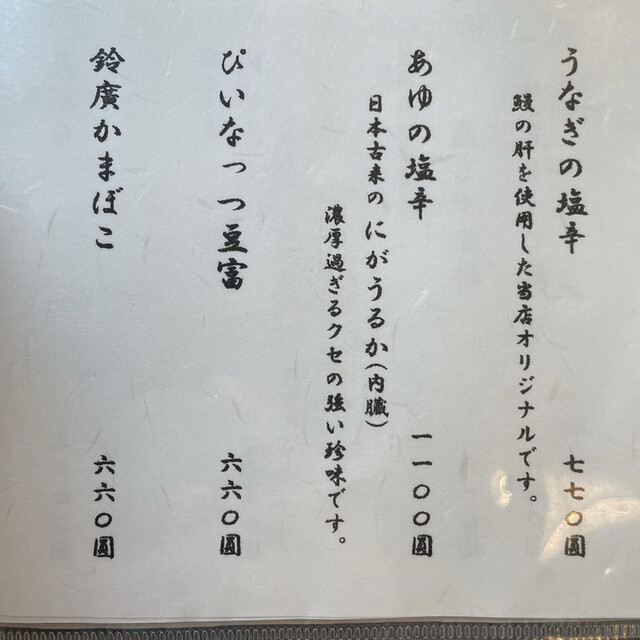 うなぎの塩辛 七七〇圓
鰻の肝を使用した当店オリジナルです。
あゆの塩辛 一一〇〇圓
日本古来のにがうるか(内臓)
濃厚過ぎるクセの強い珍味です。
ぴいなっつ豆富 六六〇圓
鈴廣かまぼこ 六六〇圓